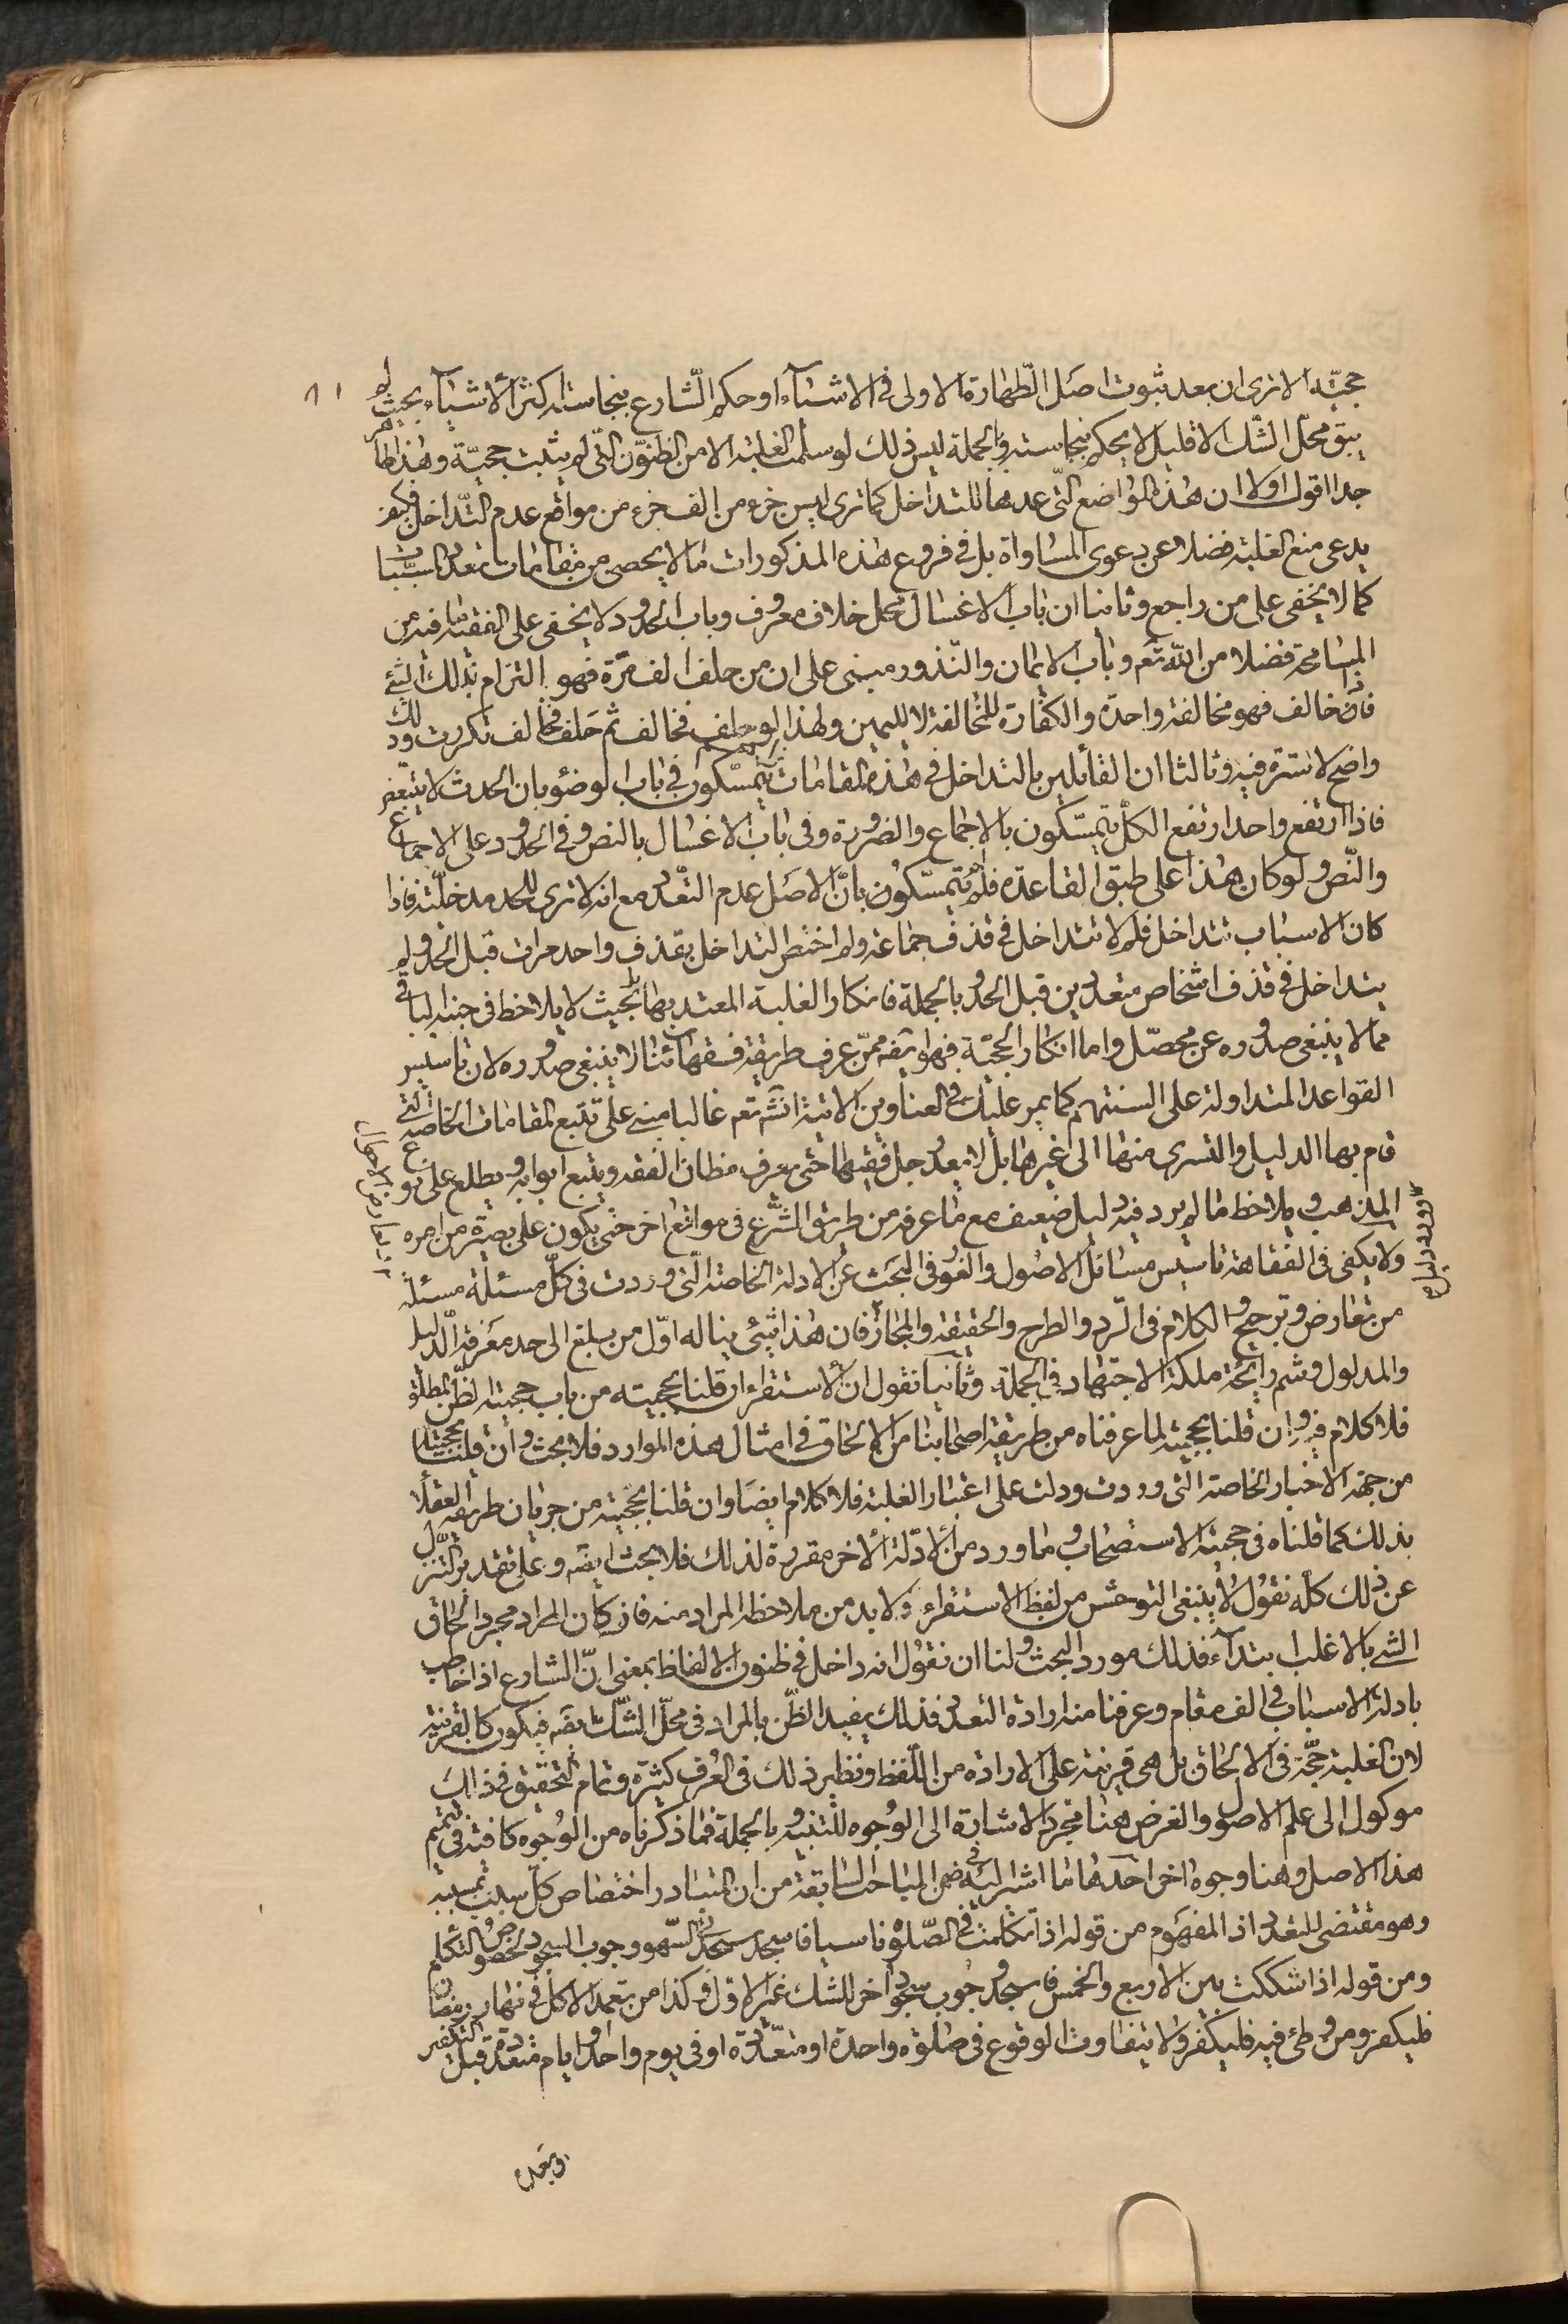 حجيّته الا ترى ان بعد ثبوت اصل الطّهارة الاولى فى الاشيآء او حكم الشّارع بنجاسته اكثر الاشيآء بحيث لم
يبق محل الشّك الا قليل لا يحكم بنجاسته وبالجملة ليس ذلك لو سلمت الغلبة الا من الظنون التّى لم يثبت حجيّته وهذا ظاهر
جدا اقول اولا ان هذه المواضع التّى عدها للتداخل كما ترى ليس جزء من الف جزء من مواقع عدم التّداخل فكيف
يدعى منع الغلبة فضلا عن دعوى المساواة بل فى فروع هذه المذكورات ما لا يحصى من مقامات تعدد المسبّبات
كما لا يخفى على من راجع وثانيا ان باب الاغسال محل خلاف معروف وباب الحدود لا يخفى على الفقيه ما فيه من
المسامحة فضلا من الله تعم وباب الايمان والنّذور مبنى على ان من حلف الف مرّة فهو التزام بذلك الشئ
فاذا خالف فهو مخالفة واحدة والكفّارة للمخالفة لا لليمين ولهذا لو حلف فخالف ثم حلف فخالف تكررت وذلك
واضح لا سترة فيه وثالثا ان القائلين بالتداخل فى هذه المقامات يتمسّكون فى باب الوضوء بان الحدث لا يتبعّض
فاذا ارتفع واحد ارتفع الكلّ يتمسّكون بالاجماع والضرورة وفى باب الاغسال بالنص وفى الحدود على الاجماع
والنّص ولو كان هذا على طبق القاعدة فلم يتمسّكون بانّ الاصل عدم التعّدد مع انه لا ترى للحد مدخليّة فاذا
كان الاسباب تتداخل فلم لا تتداخل فى قذف جماعة ولم اختص التداخل بقذف واحد مرات قبل الحد ولم
يتداخل فى قذف اشخاص متعددين قبل الحد وبالجملة فانكار الغلبة المعتد بها بحيث لا يلاحظ فى جنبه الباقى
مما لا ينبغى صدوره عن محصّل واما انكار الحجيّة فهو ايضه ممّن عرف طريقة فقهائنا لا ينبغى صدوره لان تاسيس
القواعد المتداولة على السنتهم كما يمر عليك فى العناوين الاتية انشه تعم غالبا مبنى على تتبع المقامات الخاصة التى
قام بها الدليل والتسرى منها الى غيرها بل لا يعد رجل فقيها حتى يعرف مظان الفقه ويتبع ابوابه ويطلع على نوع
المذهب ويلاحظ ما لم يرد فيه دليل ضعيف مع ما عرفه من طريق الشّرع فى مواقع اخر حتى يكون على بصيرة من امره
ولا يكفى فى الفقاهة تاسيس مسائل الاصول والغور فى البحث عن الادلة الخاصة الّتى وردت فى كلّ مسئلة مسئلة
من تعارض وترجيح والكلام فى الرّد والطرح والحقيقة والمجاز فان هذا شئ يناله اوّل من يبلغ الى حد معرفة الدّليل
والمدلول وشم رائحة ملكة الاجتهاد فى الجملة وثانيا نقول ان الاستقراء ان قلنا بحجيته من باب حجيته الظّن المطلق
فلا كلام فيه وان قلنا بحجيته لما عرفناه من طريقة اصحابنا من الالحاق فى امثال هذه الموارد فلا بحث وان قلنا بحجيتها
من جهة الاخبار الخاصة التى وردت ودلت على اعتبار الغلبة فلا كلام ايضا وان قلنا بحجيته من جريان طريقه العقلا
بذلك كما قلناه فى حجيته الاستصحاب وما ورد من الادّلة الاخر مقررة لذلك فلا بحث ايضه وعلى تقدير التّنزل
عن ذلك كلّه نقول لا ينبغى التوحش من لفظ الاستقراء ولا بد من ملاحظة المراد منه فان كان المراد مجرد الحاق
الشئ بالاغلب ابتدآء فذلك مورد البحث ولنا ان نقول انه داخل فى ظنون الالفاظ بمعنى انّ الشارع اذا خاطب
بادلة الاسباب فى الف مقام وعرفنا منه ارادة التعدد فذلك يفيد الظّن بالمراد فى محلّ الشّك ايضه فيكون كالقرينة
لان الغلبة حجّة فى الالحاق بل هى قرينة على الارادة من اللفظ ونظير ذلك فى العرف كثيرة وتمام التحقيق فى ذالك
موكول الى علم الاصول والغرض هنا مجرد الاشارة الى الوجوه للتنبيه وبالجملة فما ذكرناه من الوجوه كافية فى تتميم
هذا الاصل وهنا وجوه اخر احدها ما اشير اليه فى ضمن المباحث السابقة من ان التبادر اختصاص كلّ سبب بمسببه
وهو مقتضى للتعدد اذ المفهوم من قوله اذا تكلمت فى الصّلوة ناسيا فاسجد سجدتى السّهو وجوب السجود لخصوص التكلم
ومن قوله اذا شككت بين الاربع والخمس فاسجد وجوب سجود اخر للشك غير الاوّل وكذا من تعمد الاكل فى نهار رمضان
فليكفر ومن وطئ فيه فليكفر ولا يتفاوت الوقوع فى صلوة واحدة او متعّددة او فى يوم واحد او ايام متعّددة قبل التكفير
وبعده